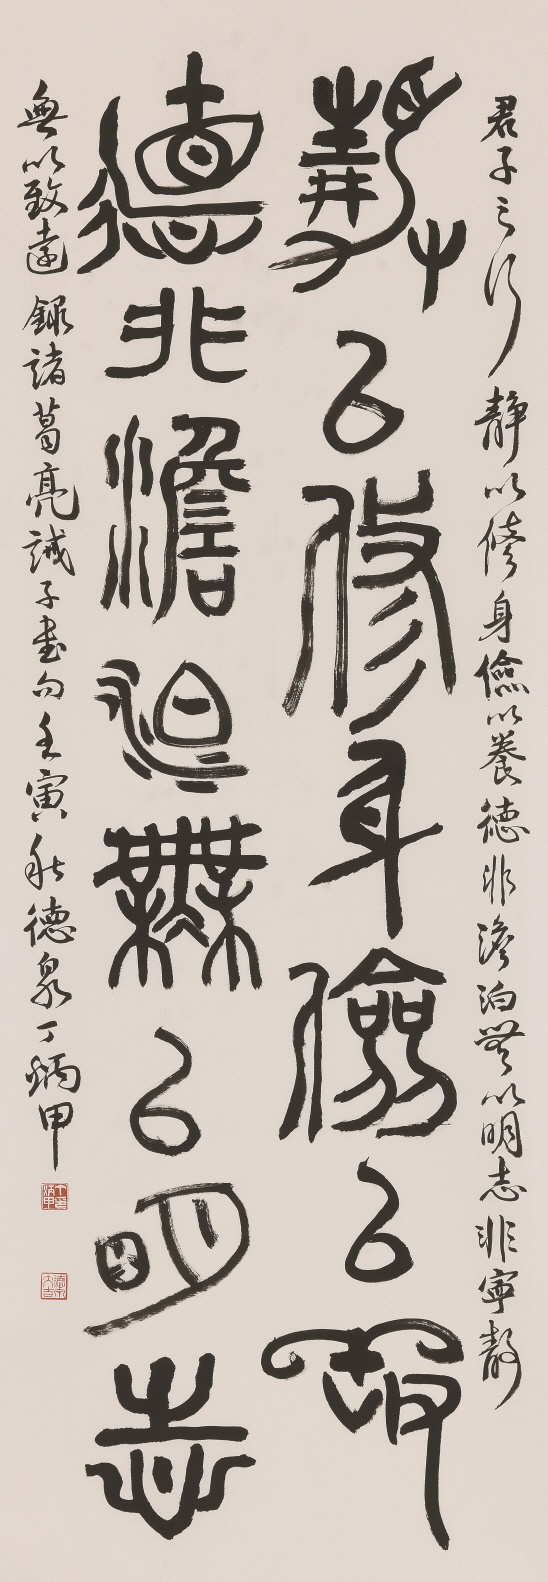 君子之行 靜以修身儉以養德非澹泊無以明志非寧靜
靜以修身儉以養
德非澹迫無以明志
無以致遠 錄諸葛亮誡子書句 壬寅秋 德泉 丁炳甲